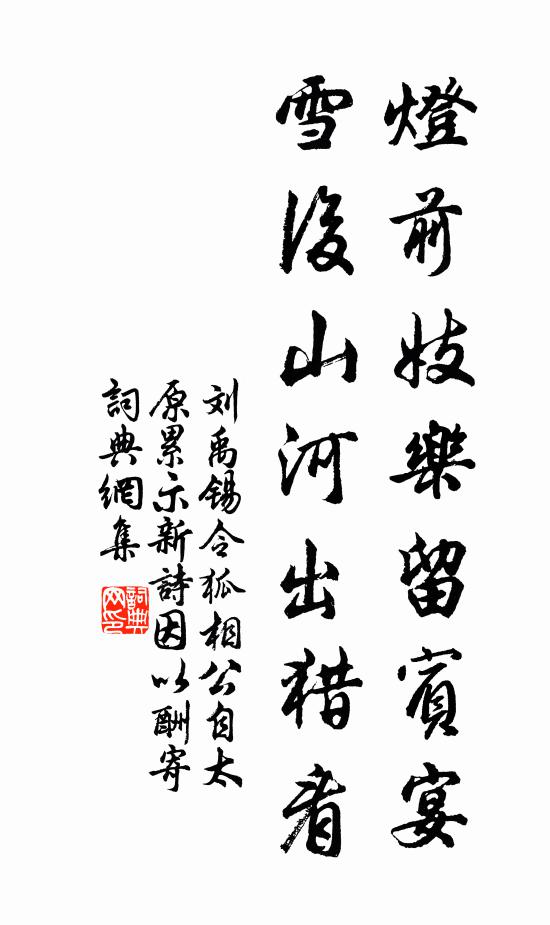 燈前妓樂留賓宴
雪後山河出猎看
刘禹锡令狐相公自太
原累示新詩因以酬寄
詞典網集
詞典
网印